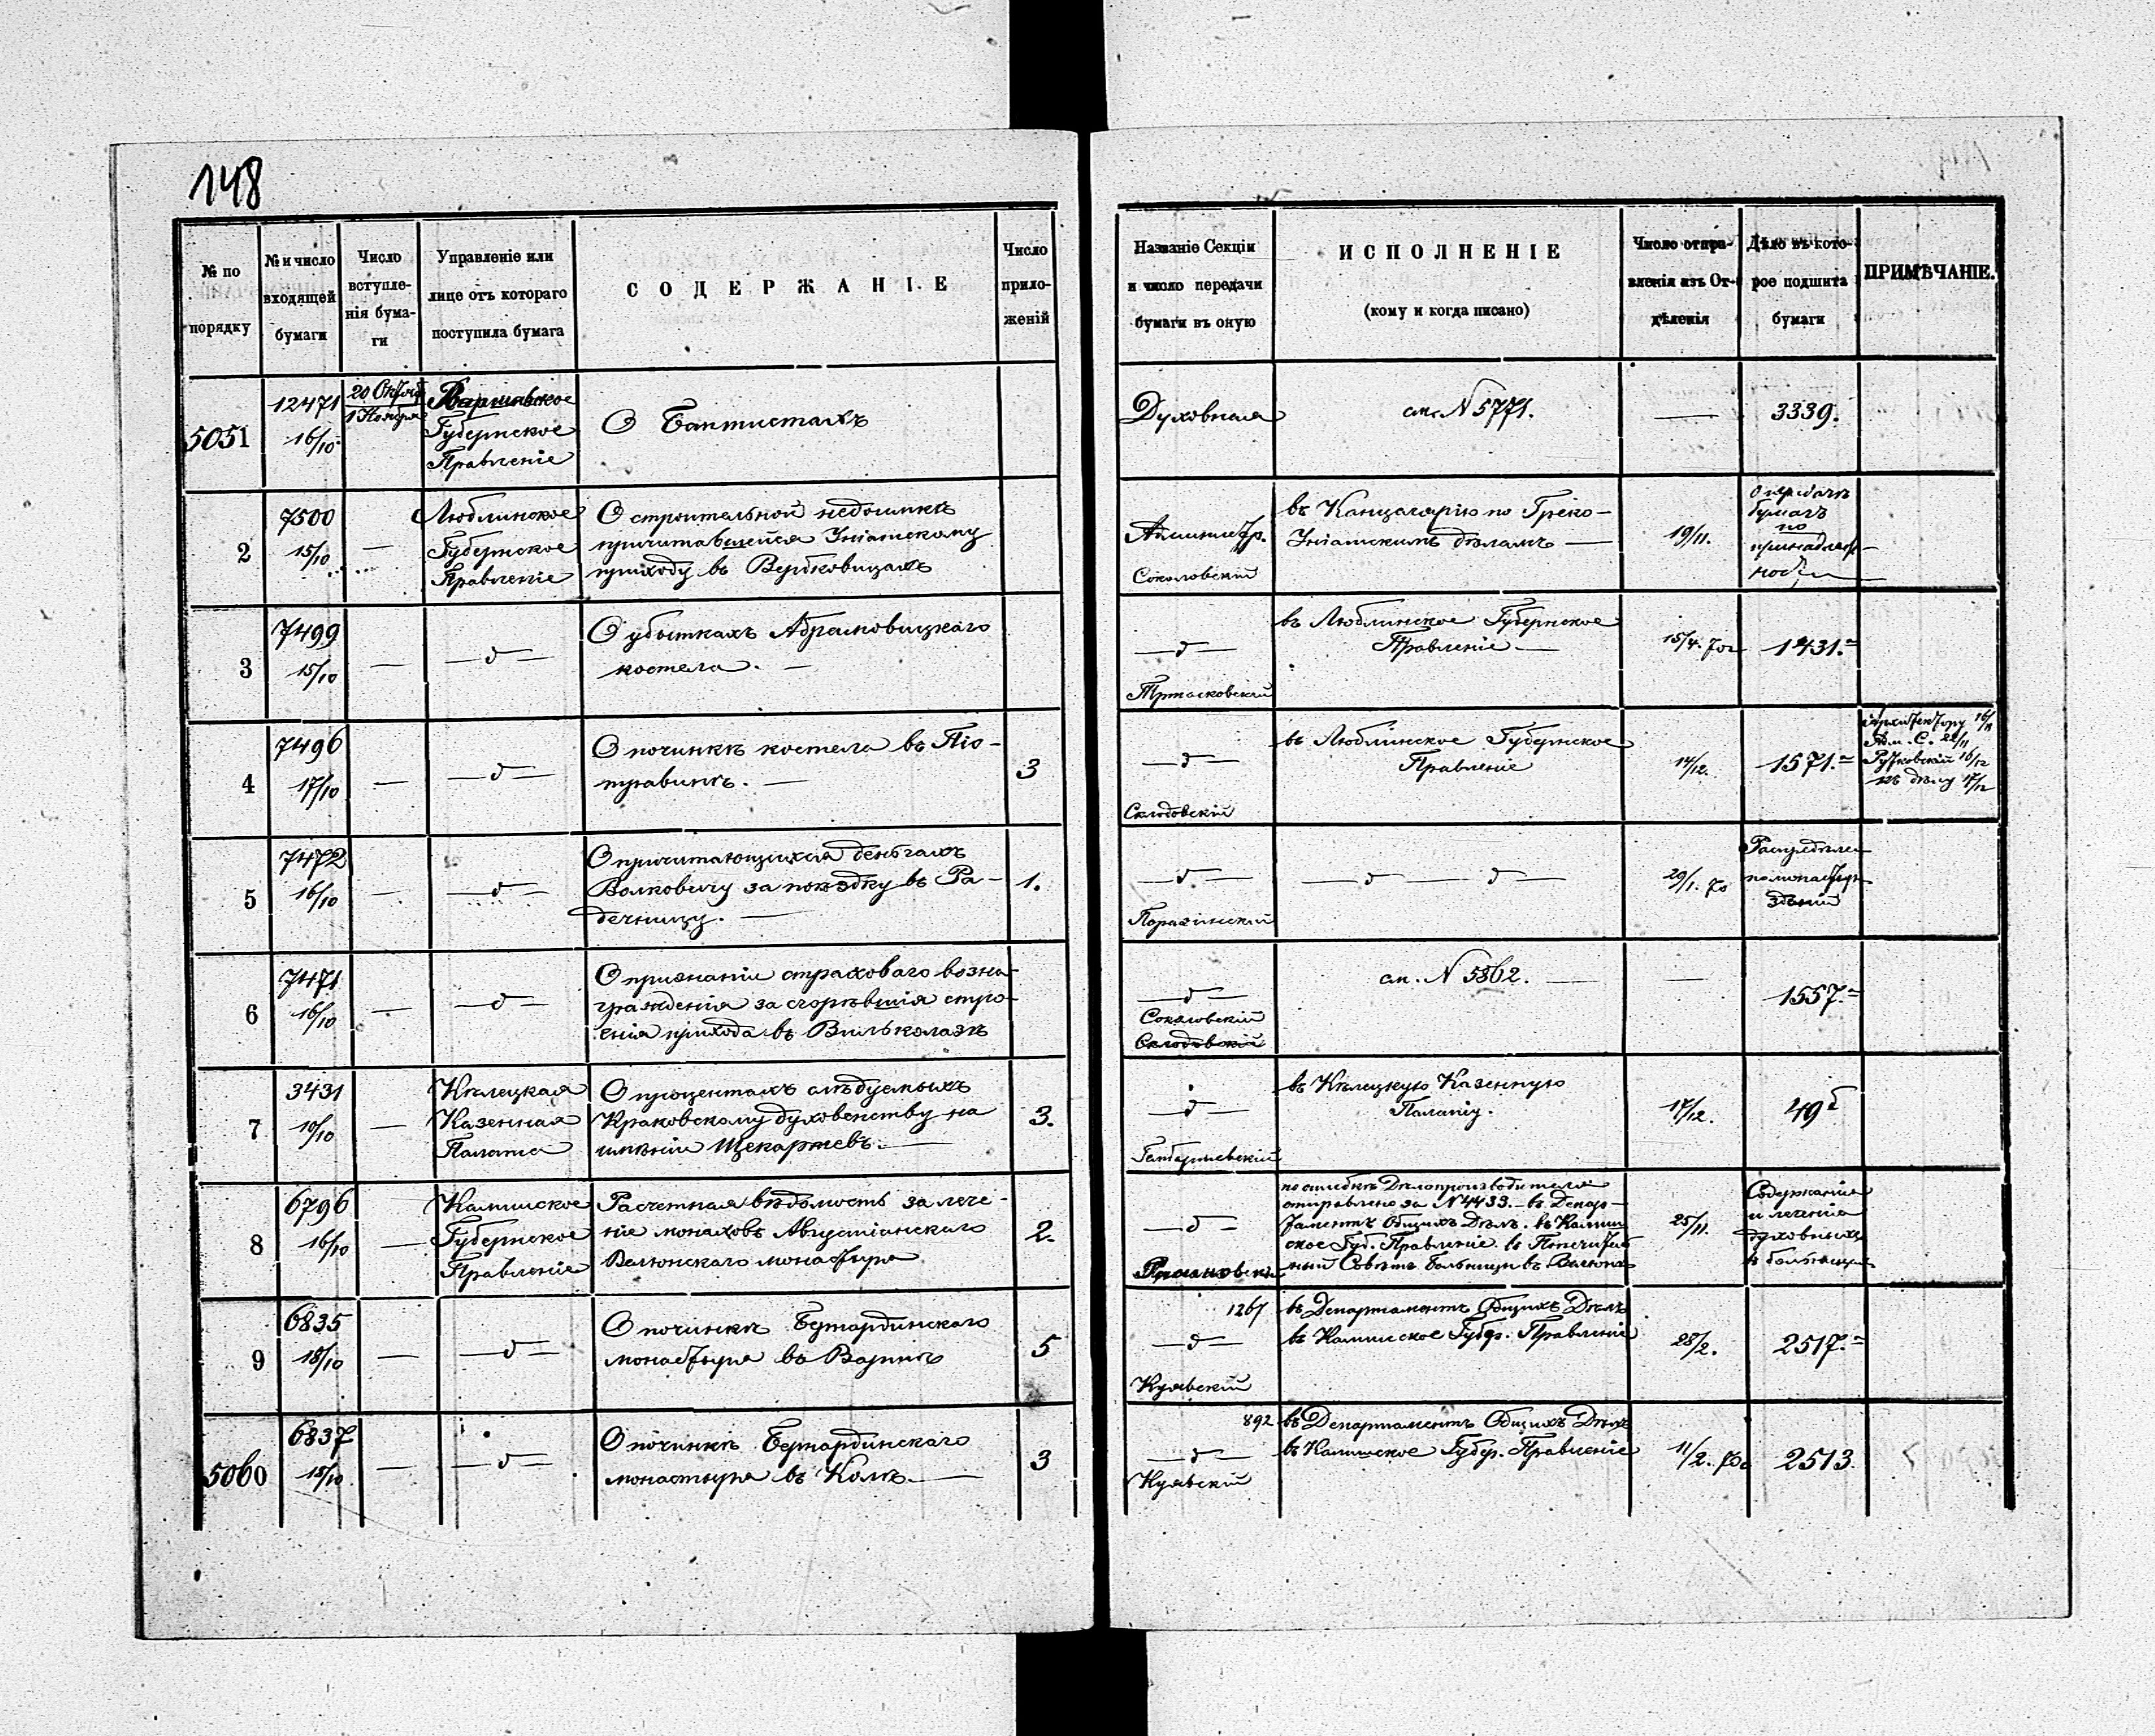 148
№ по порядку
№ и число входящей бумаги
Число вступле-нія бума-ги
Управленіе или лице отъ котораго поступила бумага
СОДЕРЖАНІЕ
Число прило-женій
Названіе Секціи и число передачи бумаги въ оную
ИСПОЛНЕНІЕ
(кому и когда писано)
Число отпра-вленія изъ От-дѣленія
Дѣло въ кото-рое подшита бумаги
ПРИМѢЧАНІЕ.
5051
12471
16/10
20 Октяб
1 Ноября
Варшавское
Губернское
Правленіе
О Баптистахъ
Духовная
см. N 5771.
3339.
2
7500
15/10
Люблинское
Губернское
Правленіе
О строительной недоимкѣ
причитавшейся Уніатскому
приходу въ Вербковицахъ
Администр.
Соколовскій
въ Канцелярію по Греко-
Уніатскимъ дѣламъ —
19/11.
О передачѣ
бумагъ
по
принадлеж-
ности
3
7499
15/10
— д —
О убыткахъ Абрамовицкаго
костела. —
— д —
въ Люблинское Губернское
Правленіе —
15/4. 70г
1431.
4
7496
17/10
— д —
О починкѣ костела въ Піо-
травинѣ. —
3
— д —
Склодовскій
въ Люблинское Губернское
Правленіе
14/12.
1571.
Архитектору 16/11
Адм. С. 22/11
Рутковскій 16/12
къ дѣлу 17/12
5
7472
16/10
— д —
О причитающихся деньгахъ
Волковичу за поѣздку въ Ра-
дечницу. —
1.
— д —
— д — д —
29/1. 70
Распредѣле
по монастыр
зданій
6
7471
16/10
— д —
О признаніи страховаго возна-
гражденія за сгорѣвшія стро-
енія прихода въ Вильколазѣ
— д —
Соколовскій
Склодовскій
см. N 5862. —
1557.
7
3431
10/10
Кѣлецкая
Казенная
Палата
О процентахъ слѣдуемыхъ
Краковскому духовенству на
имѣніи Щекаржевъ. —
3.
— д —
въ Кѣлецкую Казенную
Палату.
17/12.
49
8
6796
16/10
Калишское
Губернское
Правленіе
Расчетная вѣдомость за лече-
ніе монаховъ Августіанскаго
Велюнскаго монастыря
2.
— д —
по ошибкѣ Дѣлопроизводителя
отправлено за N 4433. — въ Депар-
таментъ Общихъ Дѣлъ. въ Калиш
ское Губ. Правленіе. въ Попечитель
ный Совѣтъ Больницы въ Велюнѣ
25/11.
Содержаніе
и леченіе
духовныхъ
въ больницахъ
9
6835
18/10
— д —
О починкѣ Бернардинскаго
монастыря въ Вартѣ
5
1267
— д —
Куявскій
въ Департаментъ Общихъ Дѣлъ
въ Калишское Губер. Правленіе
28/2.
2517.
5060
6837
18/10
— д —
О починкѣ Бернардинскаго
монастыря въ Колѣ. —
3
892
— д —
Куявскій
въ Департаментъ Общихъ Дѣлъ
въ Калишское Губер. Правленіе
11/2. 70г
2513.